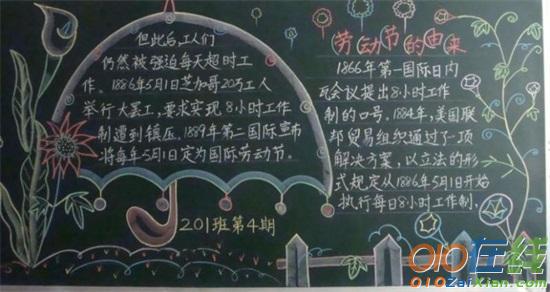 但此后,工人们
仍然被强迫每天超时工
作。1886年5月1日芝加哥20万工人
举行大罢工,要求实现8小时工作
制遭到镇压。1889年第二国际宣布
将每年5月1日定为国际劳动节。
201班第4期
劳动节的由来
1866年第一国际日内
瓦会议提出8小时工作
制的口号。1884年,美国联
邦贸易组织通过了一项
解决方案,以立法的形
式规定从1886年5月1日开始
执行每日8小时工作制.
010在线
010ZaiXian.com